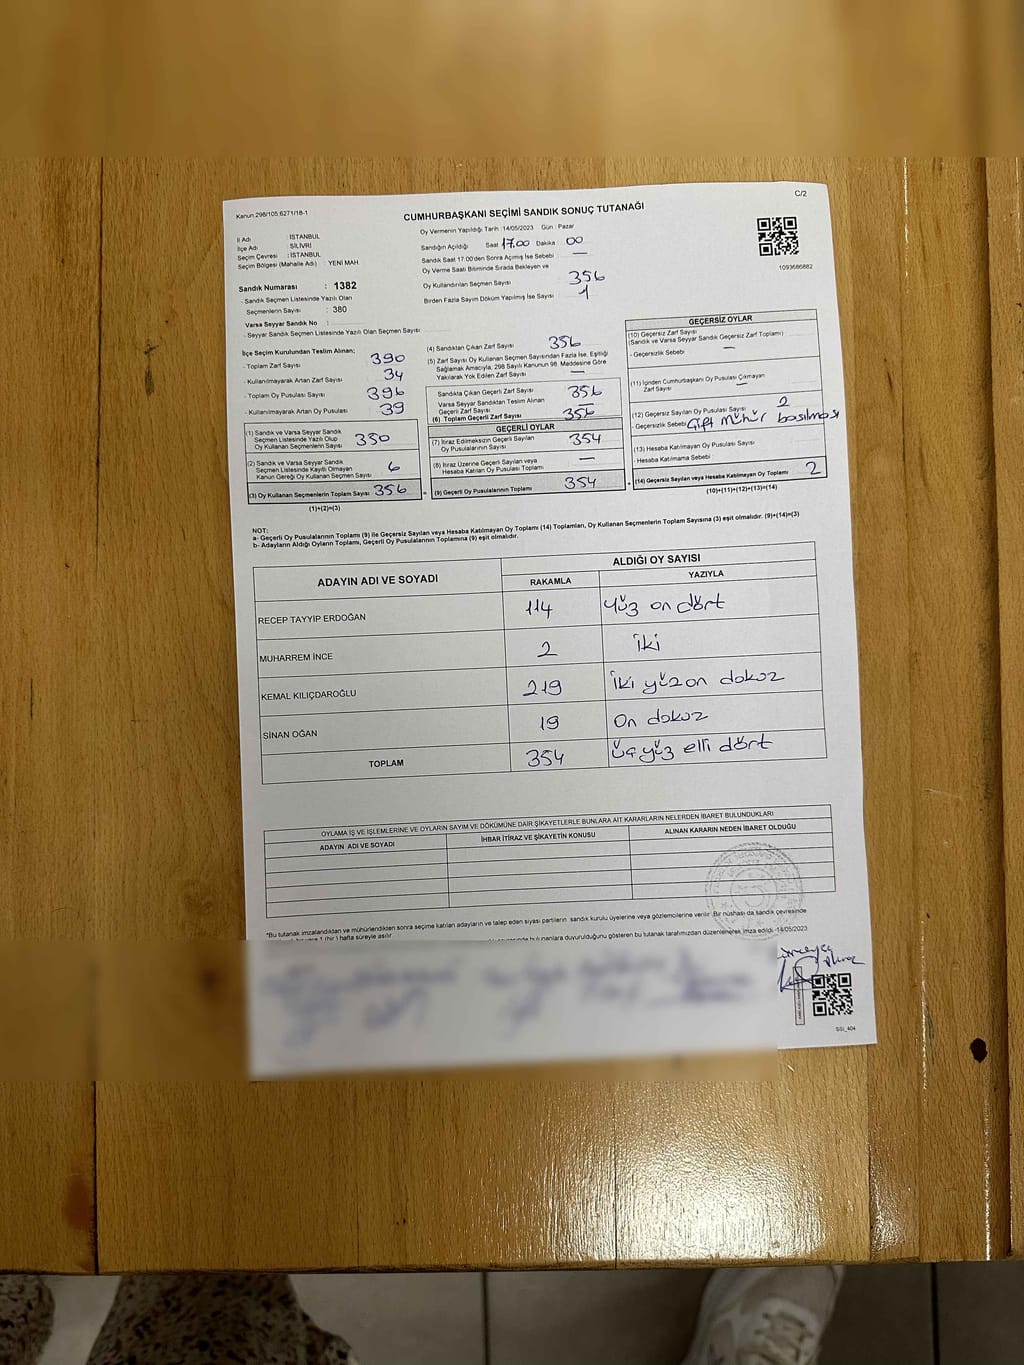 C/2
Kanun 298/105.6271/18-1
CUMHURBAŞKANI SEÇİMİ SANDIK SONUÇ TUTANAĞI
İl Adı : İSTANBUL
İlçe Adı : SİLİVRİ
Seçim Çevresi : İSTANBUL
Seçim Bölgesi (Mahalle Adı) : YENİ MAH.
Sandık Numarası : 1382
- Sandık Seçmen Listesinde Yazılı Olan
Seçmenlerin Sayısı : 380
Varsa Seyyar Sandık No :
- Seyyar Sandık Seçmen Listesinde Yazılı Olan Seçmen Sayısı
Oy Vermenin Yapıldığı Tarih : 14/05/2023 Gün : Pazar
Sandığın Açıldığı Saat 17.00 Dakika 00
Sandık Saat 17.00'den Sonra Açımış İse Sebebi : —
Oy Verme Saati Bitiminde Sırada Bekleyen ve
Oy Kullandırılan Seçmen Sayısı : 356
Birden Fazla Sayım Döküm Yapılmış İse Sayısı : 1
1093686882
İlçe Seçim Kurulundan Teslim Alınan;
- Toplam Zarf Sayısı 390
- Kullanılmayarak Artan Zarf Sayısı 34
- Toplam Oy Pusulası Sayısı 396
- Kullanılmayarak Artan Oy Pusulası 39
(1) Sandık ve Varsa Seyyar Sandık
Seçmen Listesinde Yazılı Olup
Oy Kullanan Seçmenlerin Sayısı 350
(2) Sandık ve Varsa Seyyar Sandık
Seçmen Listesinde Kayıtlı Olmayan
Kanun Gereği Oy Kullanan Seçmen Sayısı 6
(3) Oy Kullanan Seçmenlerin Toplam Sayısı 356
(1)+(2)=(3)
(4) Sandıktan Çıkan Zarf Sayısı 356
(5) Zarf Sayısı Oy Kullanan Seçmen Sayısından Fazla İse, Eşitliği
Sağlamak Amacıyla; 298 Sayılı Kanunun 98. Maddesine Göre
Yakılarak Yok Edilen Zarf Sayısı —
Sandıkta Çıkan Geçerli Zarf Sayısı 356
Varsa Seyyar Sandıktan Teslim Alınan
Geçerli Zarf Sayısı
(6) Toplam Geçerli Zarf Sayısı 356
GEÇERLİ OYLAR
(7) İtiraz Edilmeksizin Geçerli Sayılan
Oy Pusulalarının Sayısı 354
(8) İtiraz Üzerine Geçerli Sayılan veya
Hesaba Katılan Oy Pusulası Toplamı —
= (9) Geçerli Oy Pusulalarının Toplamı 354
GEÇERSİZ OYLAR
(10) Geçersiz Zarf Sayısı
(Sandık ve Varsa Seyyar Sandık Geçersiz Zarf Toplamı)
- Geçersizlik Sebebi —
(11) İçinden Cumhurbaşkanı Oy Pusulası Çıkmayan
Zarf Sayısı —
(12) Geçersiz Sayılan Oy Pusulası Sayısı 2
- Geçersizlik Sebebi Çift mühür basılması
(13) Hesaba Katılmayan Oy Pusulası Sayısı
- Hesaba Katılmama Sebebi
+ (14) Geçersiz Sayılan veya Hesaba Katılmayan Oy Toplamı 2
(10)+(11)+(12)+(13)=(14)
NOT:
a- Geçerli Oy Pusulalarının Toplamı (9) ile Geçersiz Sayılan veya Hesaba Katılmayan Oy Toplamı (14) Toplamları, Oy Kullanan Seçmenlerin Toplam Sayısına (3) eşit olmalıdır. (9)+(14)=(3)
b- Adayların Aldığı Oyların Toplamı, Geçerli Oy Pusulalarının Toplamına (9) eşit olmalıdır.
ADAYIN ADI VE SOYADI ALDIĞI OY SAYISI
RAKAMLA YAZIYLA
RECEP TAYYİP ERDOĞAN 114 yüz on dört
MUHARREM İNCE 2 iki
KEMAL KILIÇDAROĞLU 219 iki yüz on dokuz
SİNAN OĞAN 19 On dokuz
TOPLAM 354 üç yüz elli dört
OYLAMA İŞ VE İŞLEMLERİNE VE OYLARIN SAYIM VE DÖKÜMÜNE DAİR ŞİKAYETLERLE BUNLARA AİT KARARLARIN NELERDEN İBARET BULUNDUKLARI
ADAYIN ADI VE SOYADI İHBAR İTİRAZ VE ŞİKAYETİN KONUSU ALINAN KARARIN NEDEN İBARET OLDUĞU
"Bu tutanak imzalandıktan ve mühürlendikten sonra seçime katılan adayların ve talep eden siyasi partilerin sandık kurulu üyelerine veya gözlemcilerine verilir. Bir nüshası da sandık çevresinde
1 (bir) hafta süreyle asılır. bulunanlara duyurulduğunu gösteren bu tutanak tarafımızdan düzenlenerek imza edildi. 14/05/2023
SSI_404